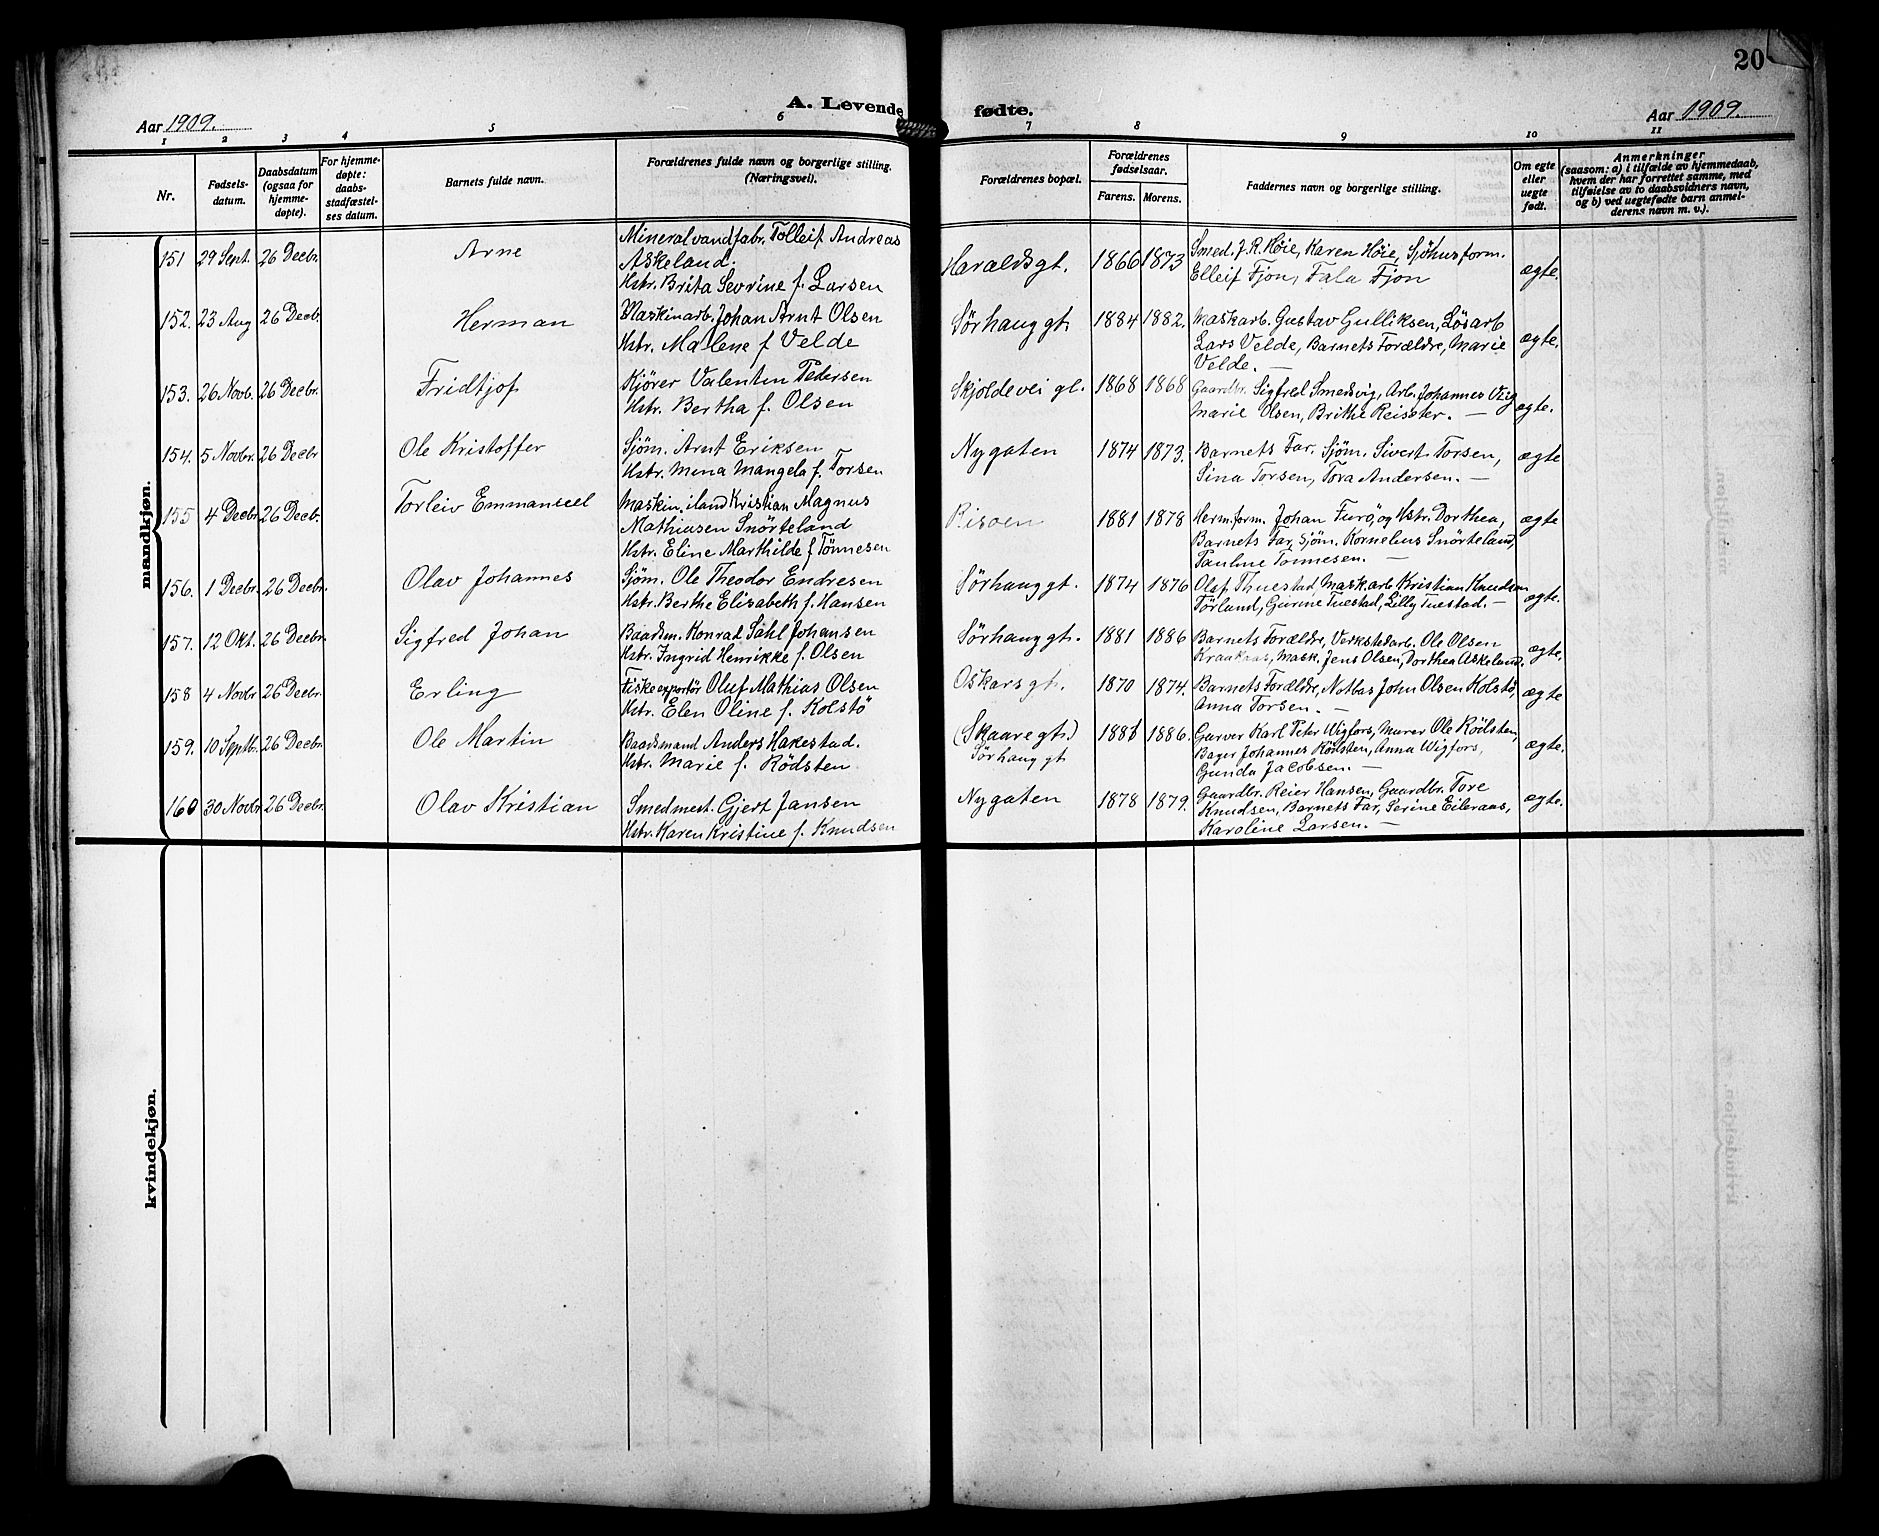 20
A. Levende fødte.
Aar 1909.
Aar 1909.
1 2 3 4 5 6 7 8 9 10 11
Nr.
Fødsels-
datum.
Daabsdatum
(ogsaa for
hjemme-
døpte).
For hjemme-
døpte:
daabs-
stadfæstel-
ses datum.
Barnets fulde navn.
Forældrenes fulde navn og borgerlige stilling.
(Næringsvei).
Forældrenes bopæl.
Forældrenes
fødselsaar.
Farens. Morens.
Faddernes navn og borgerlige stilling.
Om egte
eller
uegte
født.
Anmerkninger
(saasom: a) i tilfælde av hjemmedaab,
hvem der har forrettet samme, med
tilføielse av to daabsvidners navn,
og b) ved uegtefødte barn anmel-
derens navn m. v.).
mandkjøn.
151 29 Sept. 26 Decbr. Arne
Mineralvandfabr. Tolleif Andreas
Askeland.
Hstr. Brita Sevrine f. Larsen
Haraldsgt. 1866 1873
Smed. J. R. Höie, Karen Höie, Sjöhusform.
Elleif Fjon, Tala Fjon
ægte.
152. 23 Aug 26 Decb. Herman
Maskinarb. Johan Arnt Olsen
Hstr. Malene f Velde
Sörhauggt. 1884 1882.
Maskarb. Gustav Gulliksen, Lösarb
Lars Velde, Barnets Forældre, Marie
Velde. —
ægte.
153. 26 Novb. 26 Decbr. Fridtjof
Kjörer Valentin Pedersen
Hstr. Bertha f. Olsen
Skjoldevei gl. 1868 1868
Gaardbr. Sigfred Smedsvig, Arb. Johannes Vig
Marie Olsen, Brithe Reiseter. —
ægte.
154. 5 Novbr. 26 Decbr Ole Kristoffer
Sjöm. Arnt Eriksen
Hstr. Mina Mangela f. Torsen
Nygaten 1874 1873.
Barnets Far. Sjöm. Sivert Torsen,
Sina Torsen, Tora Andersen. —
ægte
155 4 Decbr. 26 Decb. Torleiv Emmanuel
Maskin. iland Kristian Magnus
Mathiasen Snörteland
Hstr. Eline Marthilde f Tönnesen
Risøen 1881 1878
Herm.form. Johan Furö, og Hstr. Dorthea,
Barnets Far, Sjöm. Kornelius Snörteland,
Pauline Tönnesen. —
ægte
156. 1 Decbr. 26 Decbr. Olav Johannes
Sjöm. Ole Theodor Endresen
Hstr. Berthe Elisabeth f. Hansen
Sörhauggt. 1874 1876
Olaf Thuestad, Mask.arb Kristian Knudsen
Törland, Gurine Tuestad, Lilly Tuestad. —
ægte.
157. 12 Okt. 26 Decbr. Sigfred Johan
Baadsm. Konrad Sähl Johansen
Hstr. Ingrid Henrikke f. Olsen
Sörhauggt. 1881 1886
Barnets Forældre, Verkstedarb. Ole Olsen
Kraakaas, Mask. Jens Olsen, Dorthea Askeland.
ægte.
158 4 Novbr 26 Decbr. Erling
Fiskeexportör Oluf Mathias Olsen
Hstr. Elen Oline f. Kolstö
Oskarsgt. 1870 1874.
Barnets Forældre, Notbas John Olsen Kolstö,
Anna Torsen. —
ægte
159. 10 Septbr. 26 Decbr. Ole Martin
Baadsmand Anders Hakestad.
Hstr. Marie f. Rödsten
(Skaaregt.)
Sörhauggt
1886.
Garver Karl Peter Wigfors, Murer Ole Rödsten,
Bager Johannes Rödsten, Anna Wigfors,
Gunda Jacobsen. —
ægte.
160 30 Novbr 26 Decbr. Olav Kristian
Smedmest. Gjert Jansen
Hstr. Karen Kristine f. Knudsen
Nygaten 1878 1879.
Gaardbr. Reier Hansen, Gaardbr. Tore
Knudsen, Barnets Far, Serine Eileraas,
Karoline Larsen. —
ægte.
kvindekjøn.